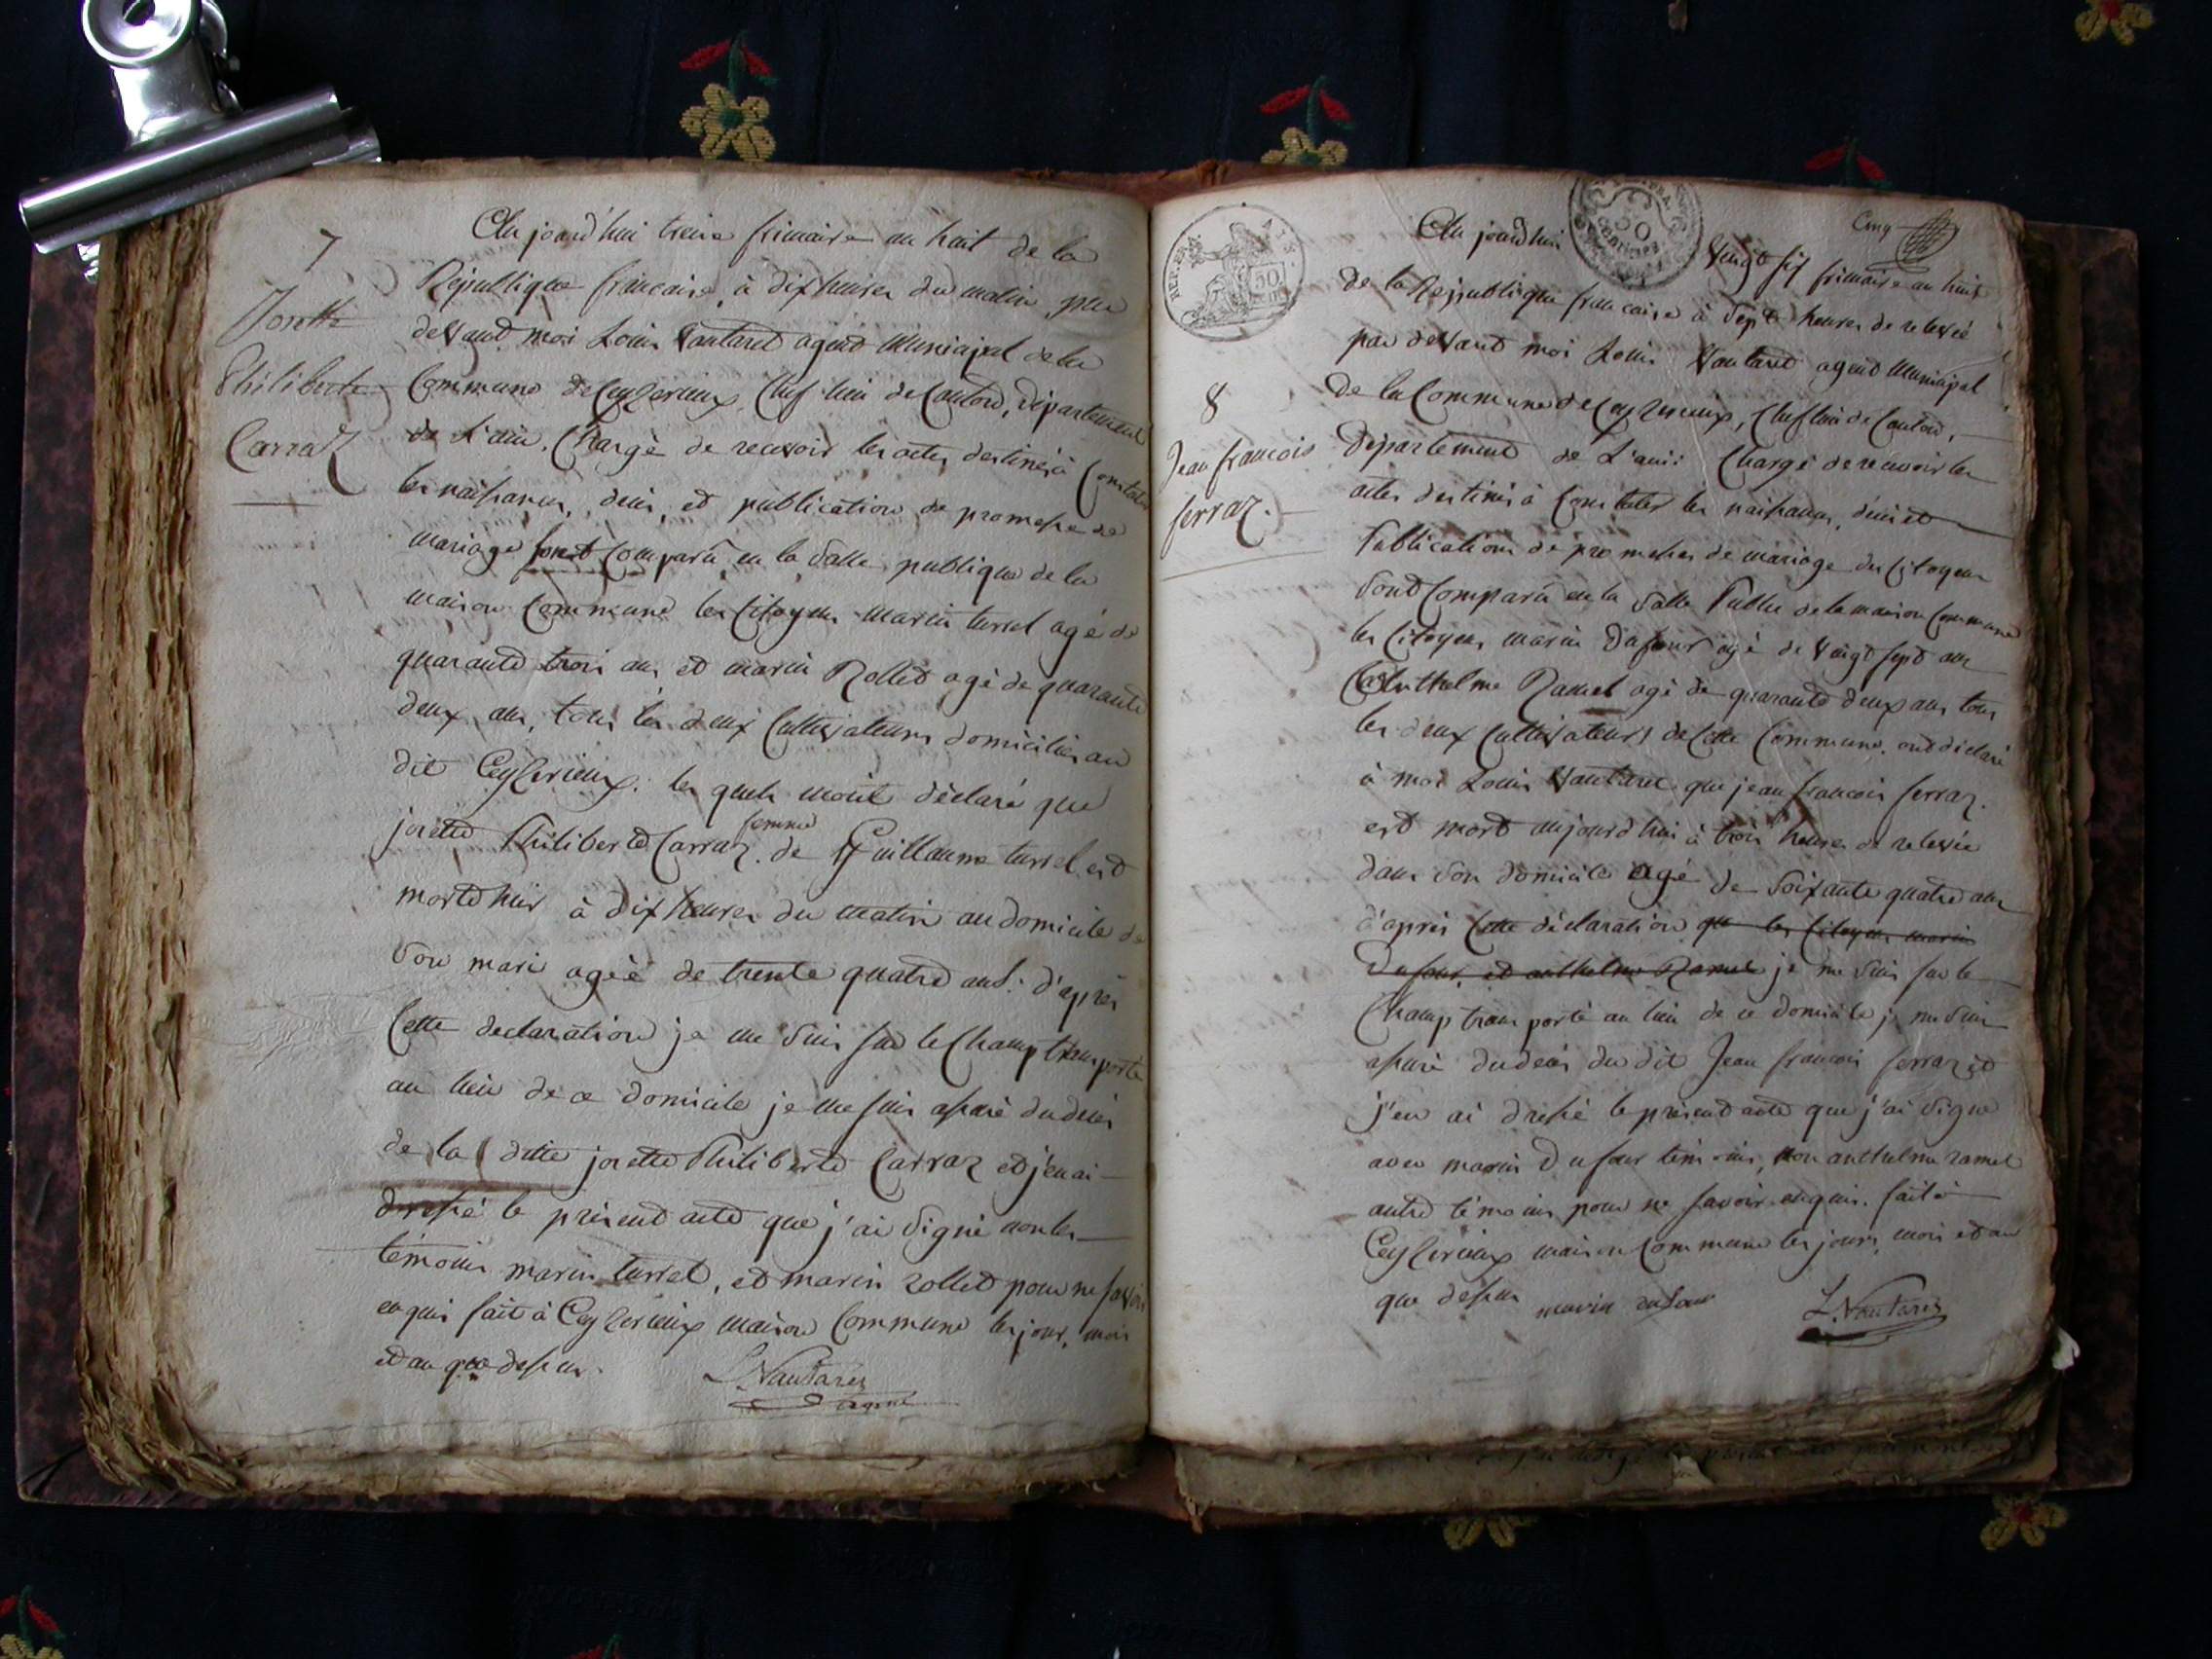 7
Josette
Philiberte
Carraz
Au jourd'hui treize frimaire an huit de la
République francaise, à dix heures du matin, par
devant moi Louis Vautaret agent Municipal de la
Commune de Ceyzerieux, Chef lieu de Canton, Département
de L'ain, Chargé de recevoir les actes destinés à Constater
les naissances, décès, et publication de promesse de
mariage sont comparû en la Salle publique de la
maison Commune les Citoyens marin tursel agé de
quarante trois ans et marin Rollet agé de quarante
deux ans, tous les deux Cultivateurs domiciliés au
dit Ceyzerieux. les quels mont déclaré que
josette Philiberte Carraz femme de Guillaume tursel est
morte hier à dix heures du matin au domicile de
son mari agée de trente quatre ans. d'après
Cette declaration je me suis sur le Champ transporté
au lieu de ce domicile je me suis assuré du décès
de la ditte josette Philiberte Carraz et j'en ai
dressé le présent acte que j'ai signé non les
témoins marin tursel, et marin rollet pour ne savoir
enquis fait à Ceyzerieux maison Commune les jour, mois
et an que dessus.
L. Vautaret
agent
REP. FRA.
50
50
Centimes
Cinq
8
Jean francois
ferraz.
Au jourdhui Vingt six frimaire an huit
de la Republique francaise à Sept heures de relevée
par devant moi Louis Vautaret agent Municipal
de la Commune de Ceyzerieux, Chef lieu de Canton,
Département de L'ain: Chargé de recevoir les
actes destinés à Constater les naissances, décès et
Publications de promesses de mariage des Citoyens
Sont Comparû en la Salle Publie de la maison Commune
les Citoyens marin Dufour agé de vingt sept ans
Anthelme Ramel agé de quarante deux ans tous
les deux Cultivateurs de Cette Commune. ont déclaré
à moi Louis Vautaret que jean francois ferraz.
est mort aujourd'hui à trois heures de relevée
dans son domicile agé de Soixante quatre ans
d'après Cette déclaration que les Citoyens marin
Dufour, et anthelme Ramel je me suis sur le
Champ transporté au lieu de ce domicile je me suis
assuré du décès du dit Jean francois ferraz et
j'en ai dressé le présent acte que j'ai signé
avec marin Dufour témoin, non anthelme ramel
autre témoin pour ne savoir enquis. fait à
Ceyzerieux maison Commune les jours, mois et an
que dessus
marin dufour
L. Vautaret